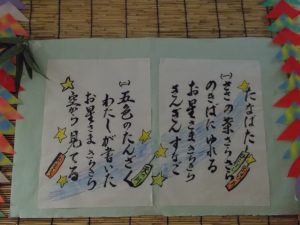 たなばたさま
(一)ささの葉さらさら
のきばにゆれる
お星さまきらきら
きんぎん すなご
(二)五色のたんざく
わたしが書いた
お星さまきらきら
空から 見てる